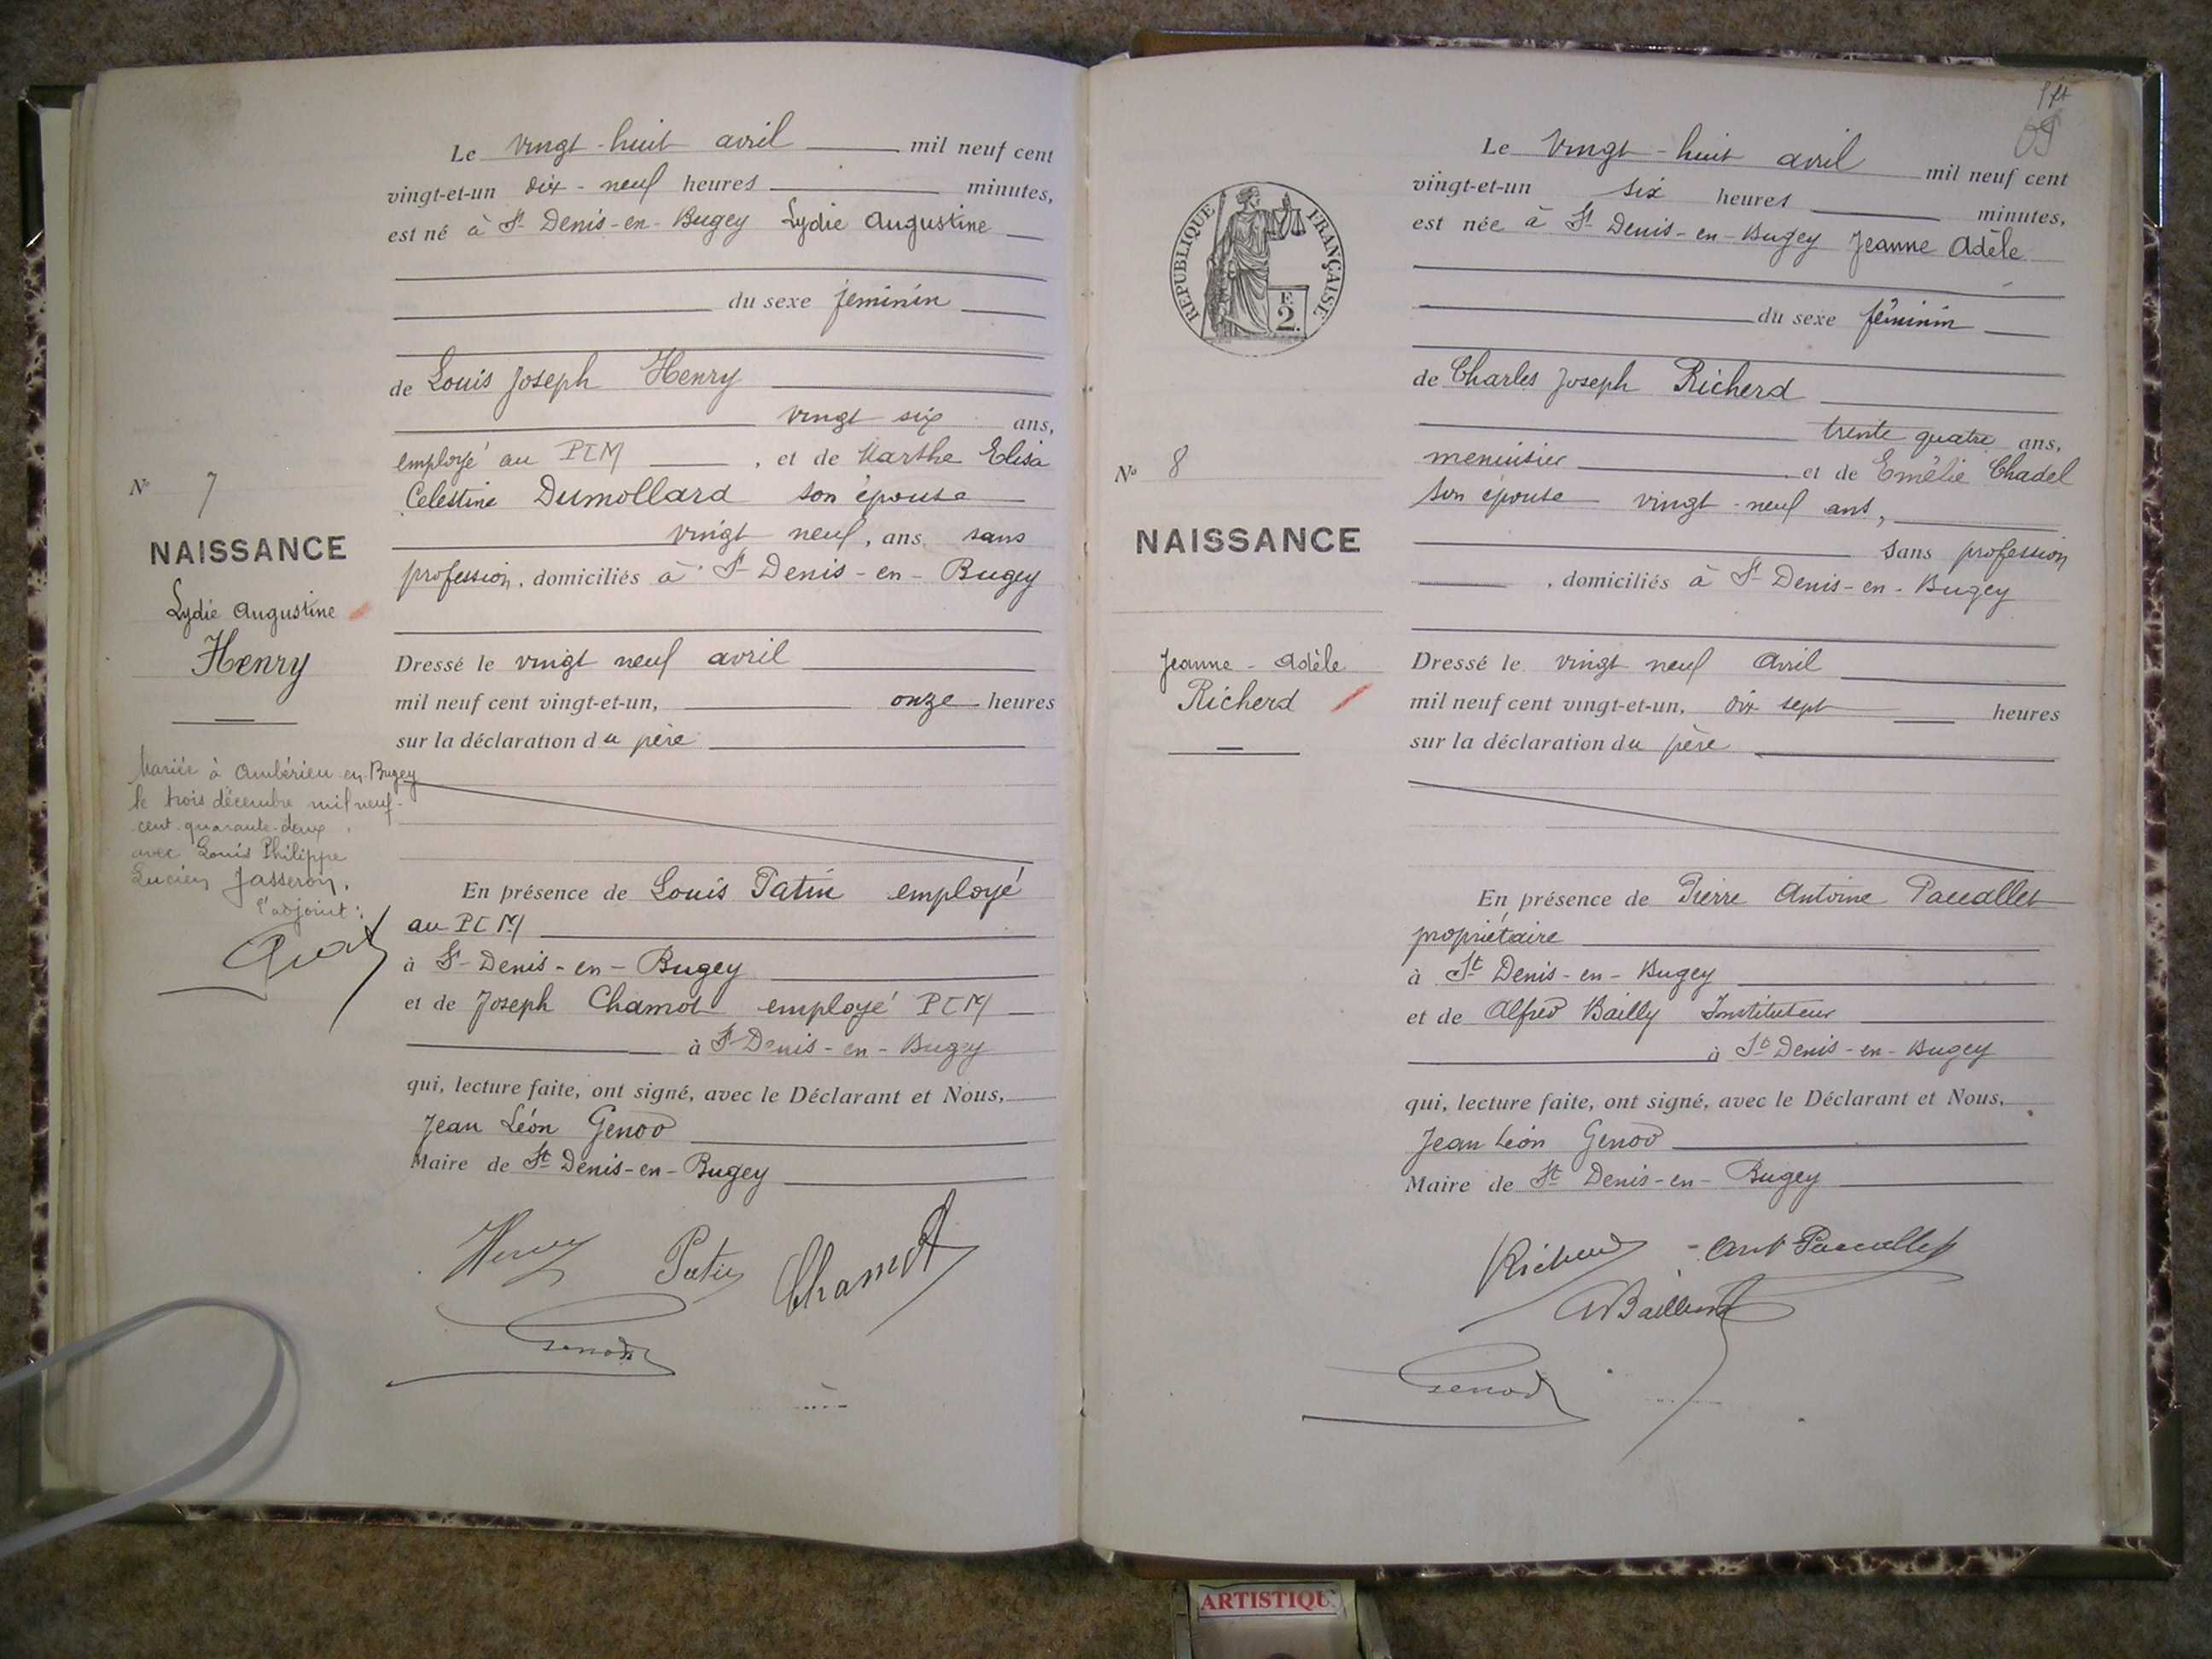 Le vingt-huit avril mil neuf cent
vingt-et-un dix-neuf heures minutes,
est né à St Denis-en-Bugey Lydie Augustine
du sexe féminin
de Louis Joseph Henry
vingt six ans,
employé au PLM , et de Marthe Elisa
Celestine Dumollard son épouse
vingt neuf, ans sans
profession, domiciliés à St Denis-en-Bugey
N° 7
NAISSANCE
Lydie Augustine
Henry
Dressé le vingt neuf avril
mil neuf cent vingt-et-un, onze heures
sur la déclaration du père
Mariée à Ambérieu-en-Bugey
le trois décembre mil neuf-
cent-quarante-deux
avec Louis Philippe
Lucien Jasseron.
l'adjoint:
En présence de Louis Patin employé
au PLM
à St Denis-en-Bugey
et de Joseph Chamot employé PLM
à St Denis-en-Bugey
qui, lecture faite, ont signé, avec le Déclarant et Nous,
Jean Léon Genod
Maire de St Denis-en-Bugey
Henry Patin Chamot
Genod
69
Le Vingt-huit avril mil neuf cent
vingt-et-un six heures minutes,
est née à St Denis-en-Bugey Jeanne Adèle
du sexe féminin
de Charles Joseph Richerd
trente quatre ans,
menuisier et de Emélie Chadel
son épouse vingt-neuf ans,
sans profession
, domiciliés à St Denis-en-Bugey
REPUBLIQUE FRANÇAISE
F.
2.
N° 8
NAISSANCE
Jeanne-Adèle
Richerd
Dressé le vingt neuf Avril
mil neuf cent vingt-et-un, dix sept heures
sur la déclaration du père
En présence de Pierre Antoine Pacallet
propriétaire
à St Denis-en-Bugey
et de Alfred Bailly Instituteur
à St Denis-en-Bugey
qui, lecture faite, ont signé, avec le Déclarant et Nous,
Jean Léon Genod
Maire de St Denis-en-Bugey
Richerd Ant Pacallet
ABailly
Genod
ARTISTIQU